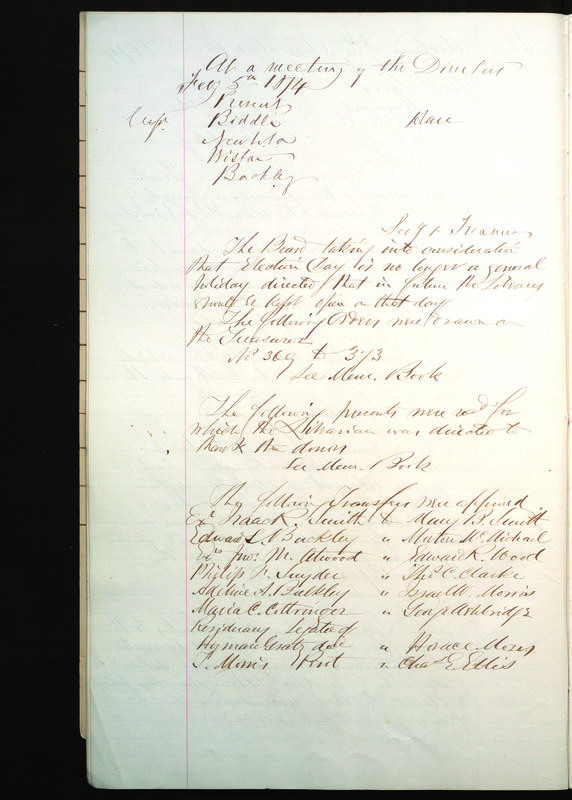 At a meeting of the Directors
Feby 5th 1874
Present
Biddle Hare
Newbold
Wistar
Buckley
Secy & Treasurer
The Board taking into consideration
that Election Day is no longer a general
holiday directed that in future the Library
would be kept open on that day
The following Orders were drawn on
the Treasurer
No 369 to 373
See Mem. Book
The following presents were recd for
which the Librarian was directed to
thank the donors
See Mem. Book
The following Transfers were approved
Exr Isaac R. Smith to Mary B. Smith
Edward S. Buckley " Morton McMichael
Exrs Jno. M. Atwood " Edward R. Wood
Philip F. Snyder " Thos. C. Clarke
Adeline A. Bulkley " Israel W. Morris
Maria C. Cottringer " George Ashbridge
Residuary Legatee of
Hyman Gratz decd " Horace Moses
T. Morris Perot " Chas. E. Ellis